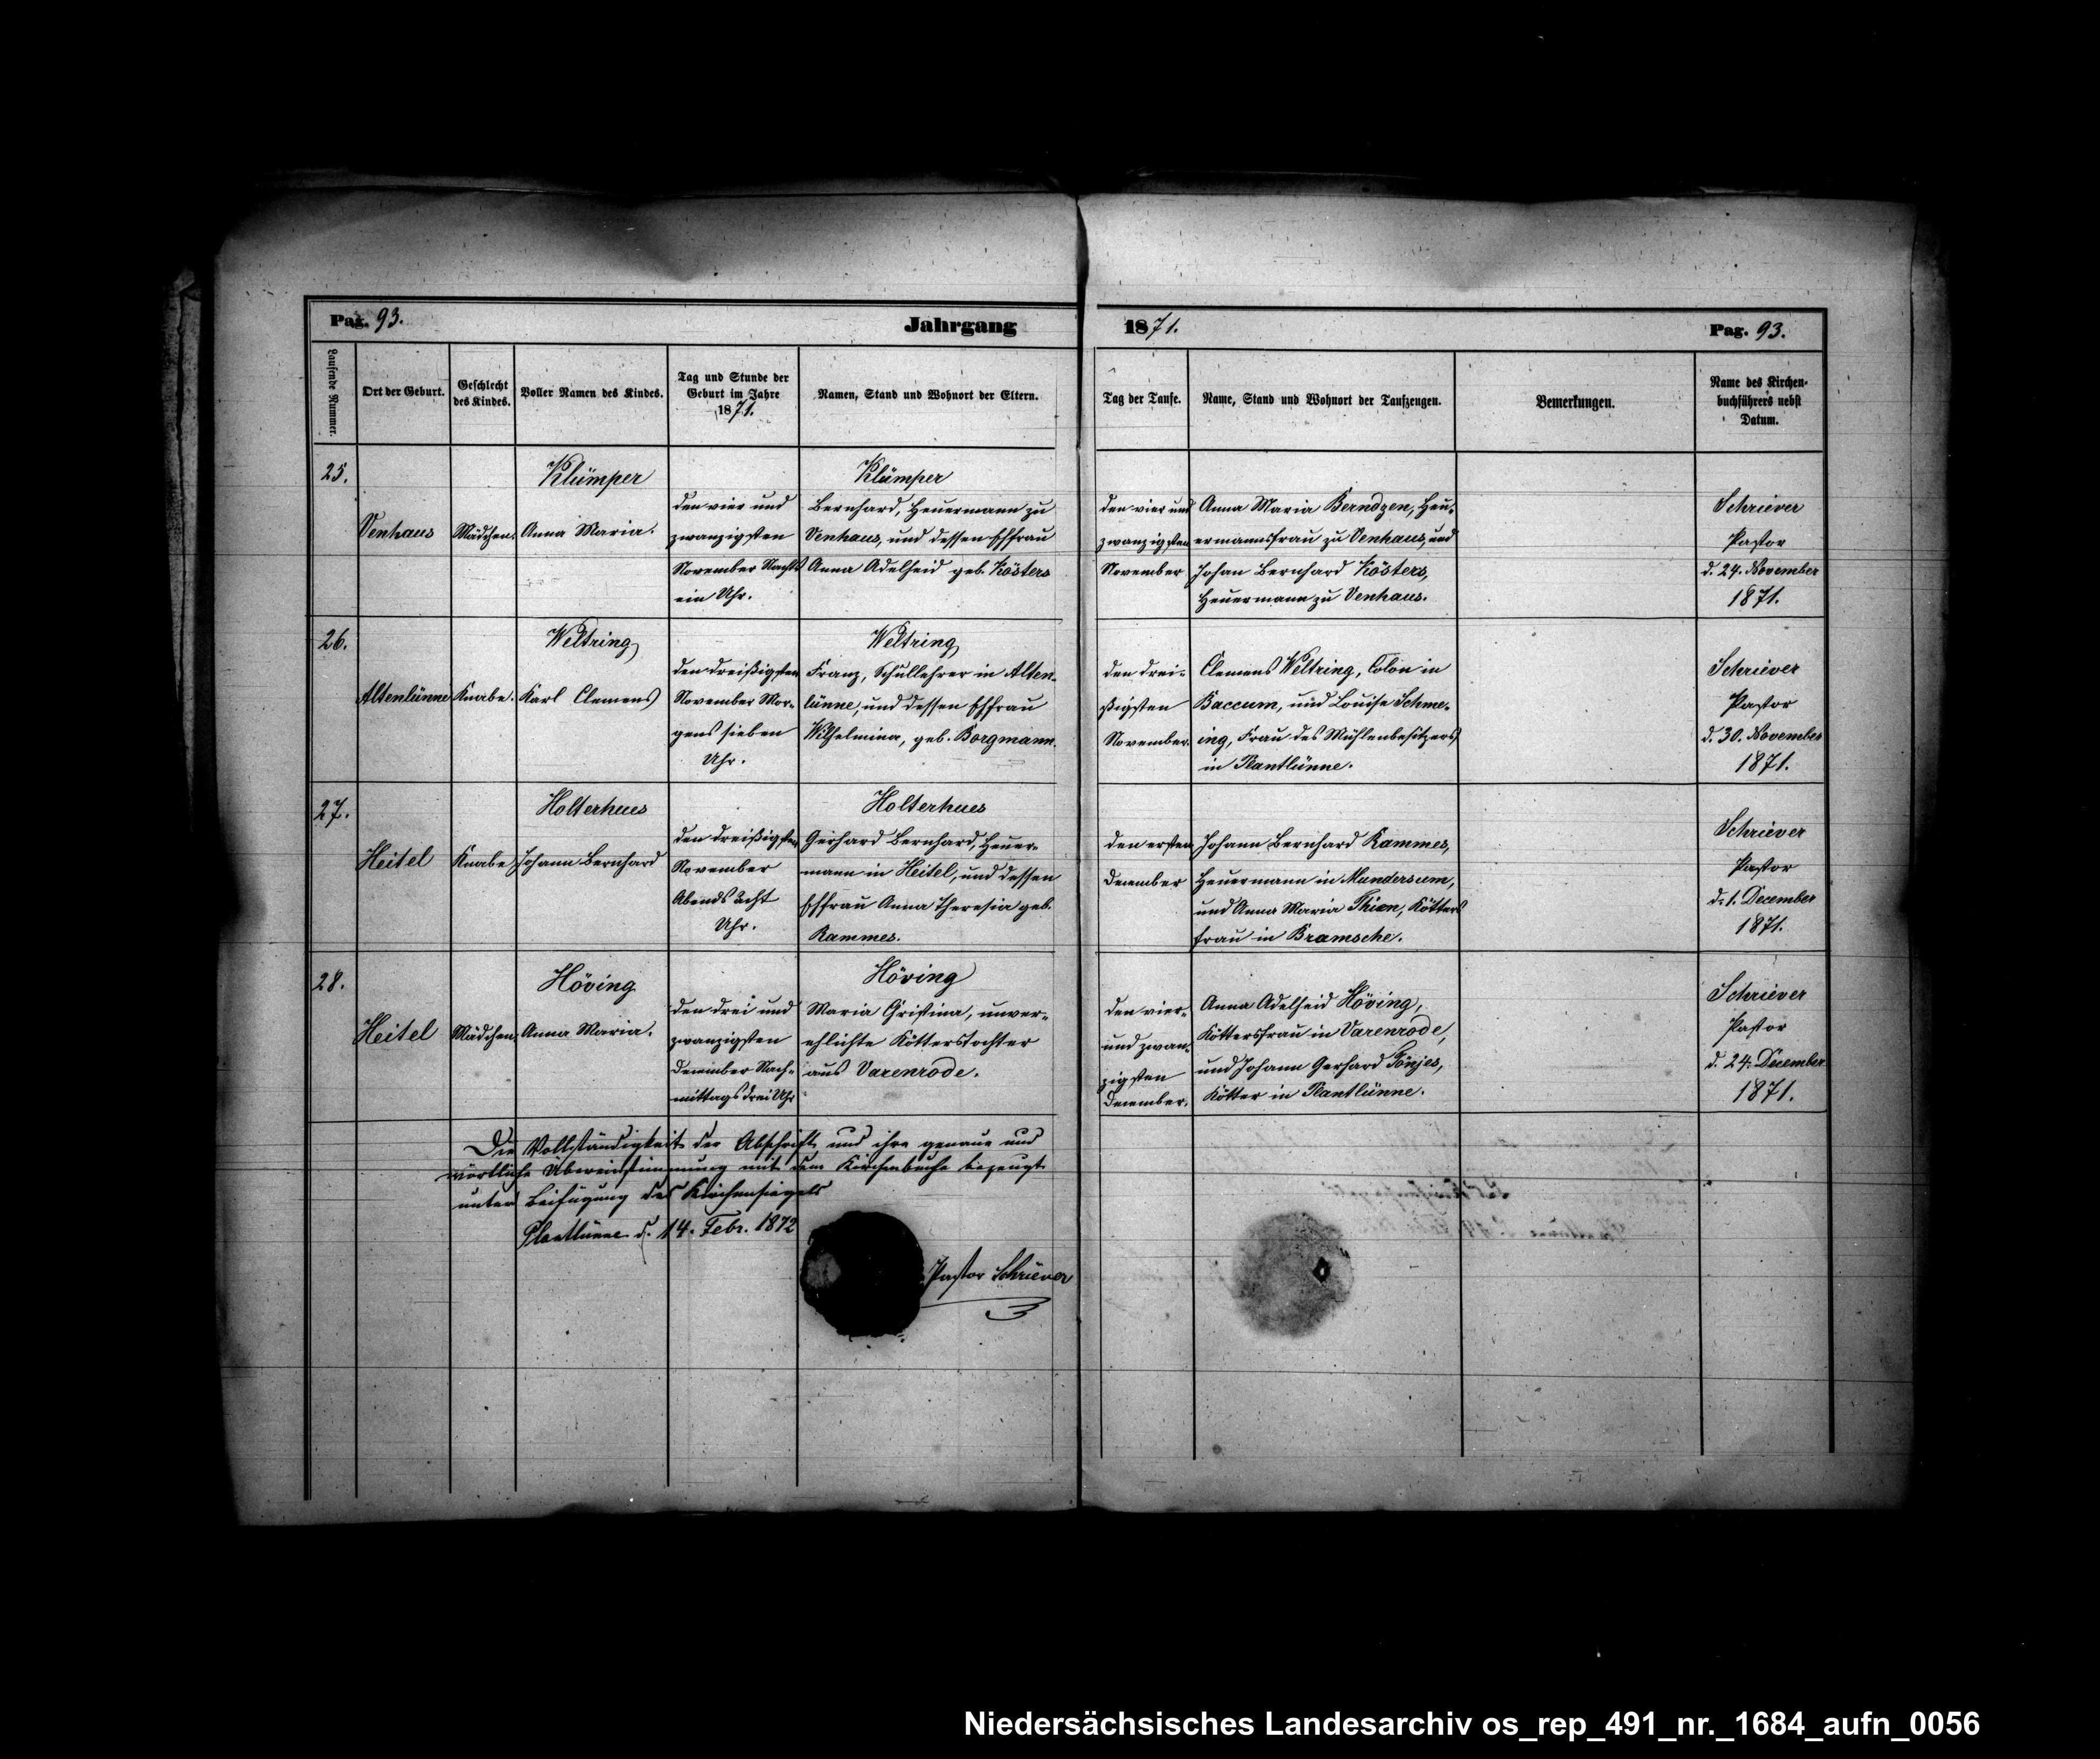 Pag. 93.
Jahrgang
1871.
Pag. 93.
Laufende Nummer.
Ort der Geburt.
Geschlecht
des Kindes.
Voller Namen des Kindes.
Tag und Stunde der
Geburt im Jahre
1871.
Namen, Stand und Wohnort der Eltern.
Tag der Taufe.
Name, Stand und Wohnort der Taufzeugen.
Bemerkungen.
Name des Kirchen-
buchführers nebst
Datum.
25.
Venhaus
Mädchen.
Klümper
Anna Maria.
den vier und
zwanzigsten
November Nachts
ein Uhr.
Klümper
Bernhard, Heuermann zu
Venhaus, und dessen Ehefrau
Anna Adelheid geb. Kösters
den vier und
zwanzigsten
November
Anna Maria Berndzen, Heu-
ermannsfrau zu Venhaus, und
Johan Bernhard Kösters,
Heuermann zu Venhaus.
Schriever
Pastor
d. 24. November
1871.
26.
Altenlünne
Knabe.
Weltring
Karl Clemens
den dreißigsten
November Mor-
gens sieben
Uhr.
Weltring
Franz, Schullehrer in Alten-
lünne, und dessen Ehefrau
Wilhelmina, geb. Borgmann.
den drei-
ßigsten
November.
Clemens Weltring, Colon in
Baccum, und Louise Schme-
ing, Frau des Mühlenbesitzers
in Plantlünne.
Schriever
Pastor
d. 30. November
1871.
27.
Heitel
Knabe
Holterhues
Johann Bernhard
den dreißigsten
November
Abends acht
Uhr.
Holterhues
Gerhard Bernhard, Heuer-
mann in Heitel, und dessen
Ehefrau Anna Theresia geb.
Rammes.
den ersten
December
Johann Bernhard Rammes,
Heuermann in Mundersum,
und Anna Maria Thien, Kötters
frau in Bramsche.
Schriever
Pastor
d. 1. December
1871.
28.
Heitel
Mädchen.
Höving
Anna Maria.
den drei und
zwanzigsten
December Nach-
mittags drei Uhr
Höving
Maria Christina, unver-
ehlichte Kötterstochter
aus Varenrode.
den vier-
und zwan-
zigsten
December.
Anna Adelheid Höving,
Köttersfrau in Varenrode,
und Johann Gerhard Tönjes,
Kötter in Plantlünne.
Schriever
Pastor
d. 24. December
1871.
Die Vollständigkeit der Abschrift und ihre genaue und
wörtliche Übereinstimmung mit dem Kirchenbuche bezeugt
unter Beifügung des Kirchensiegels
Plantlünne d. 14. Febr. 1872
Pastor Schriever
Niedersächsisches Landesarchiv os_rep_491_nr._1684_aufn_0056